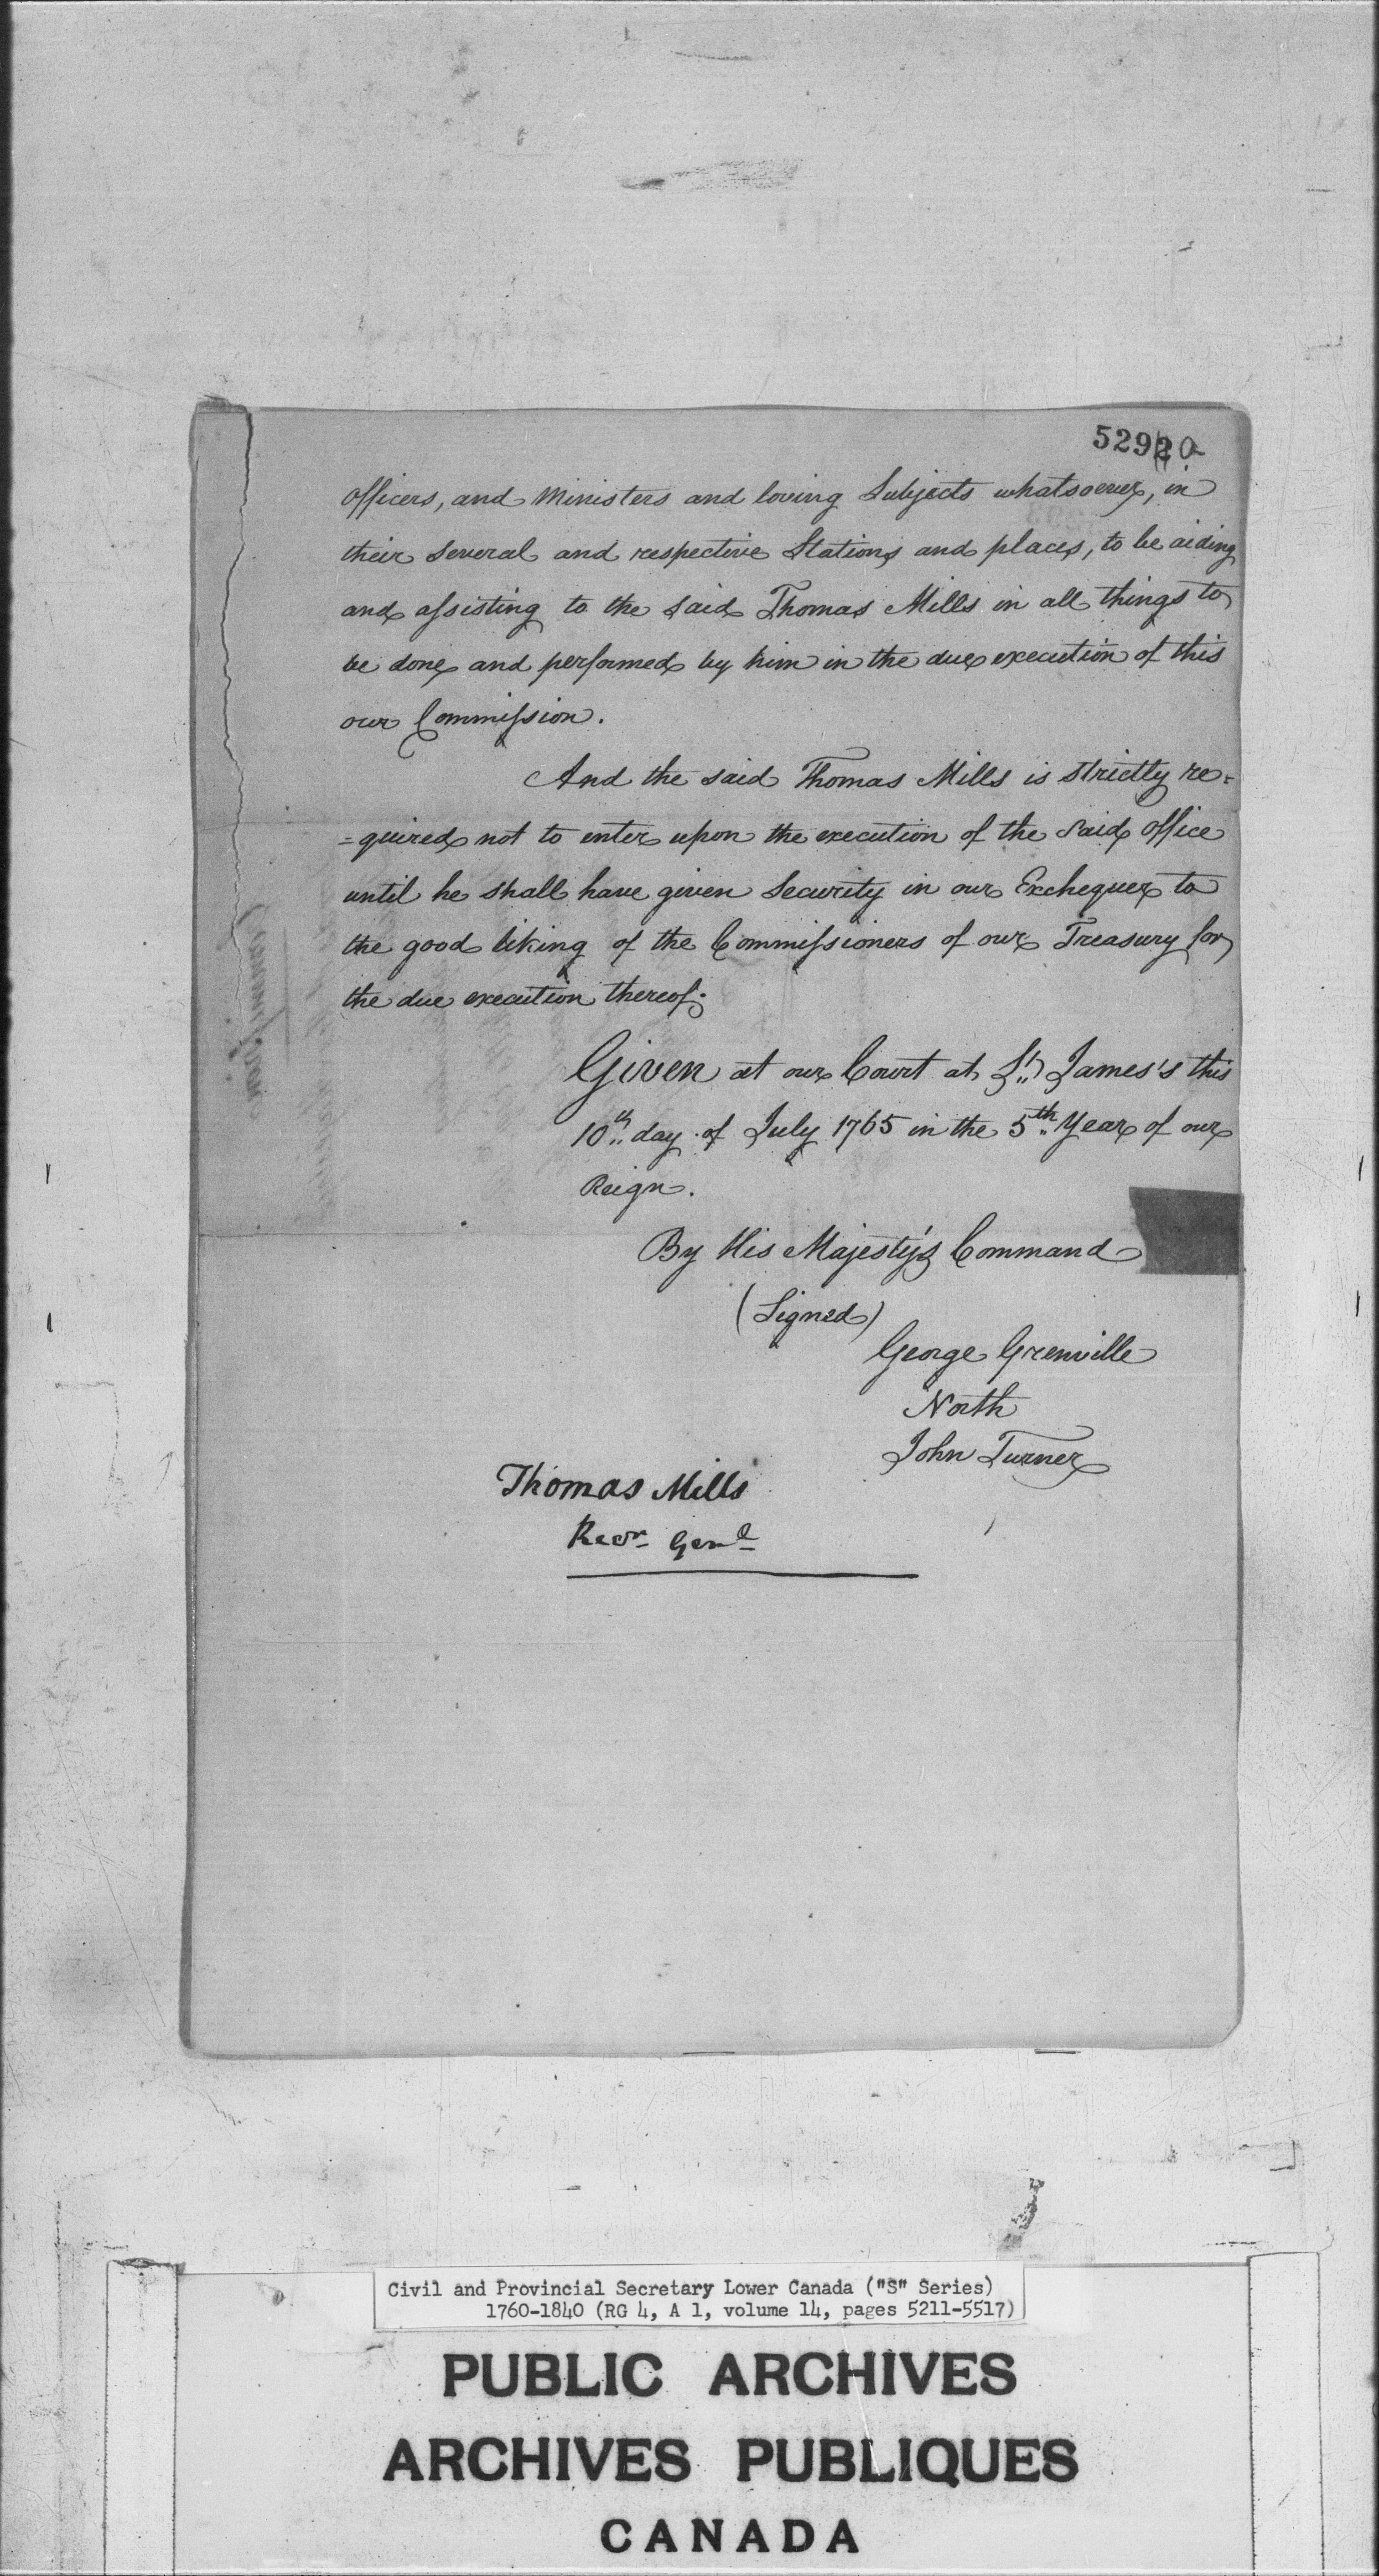 5290
officers, and Ministers and loving Subjects whatsoever, in
their Several and respective Stations and places, to be aiding
and assisting to the Said Thomas Mills in all things to
be done and performed by him in the due execution of this
our Commission.
And the said Thomas Mills is strictly re=
=quired not to enter upon the execution of the Said Office
until he shall have given Security in our Exchequer to
the good liking of the Commissioners of our Treasury for
the due execution thereof.
Given at our Court at St. James's this
10th day of July 1765 in the 5th Year of our
Reign.
By His Majesty's Command
(Signed)
George Grenville
North
John Turner
Thomas Mills
Recr Genl
Civil and Provincial Secretary Lower Canada ("S" Series)
1760-1840 (RG 4, A 1, volume 14, pages 5211-5517)
PUBLIC ARCHIVES
ARCHIVES PUBLIQUES
CANADA